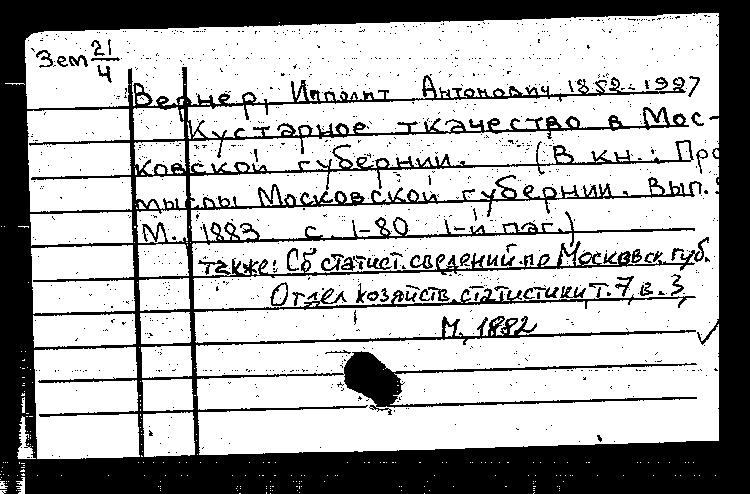 Зем 21/4
Вернер, Ипполит Антонович, 1852-1927
Кустарное ткачество в Мос-
ковской губернии. (В кн.: Про
мыслы Московской губернии. Вып.
М., 1883 с. 1-80 1-й паг.)
также: Сб статист. сведений по Московск. губ.
Отдел хозяйств. статистики, т. 7, в. 3,
М., 1882